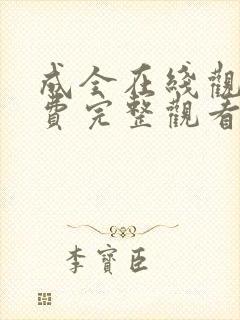 成全在綫觀
費完整觀看
李寶臣